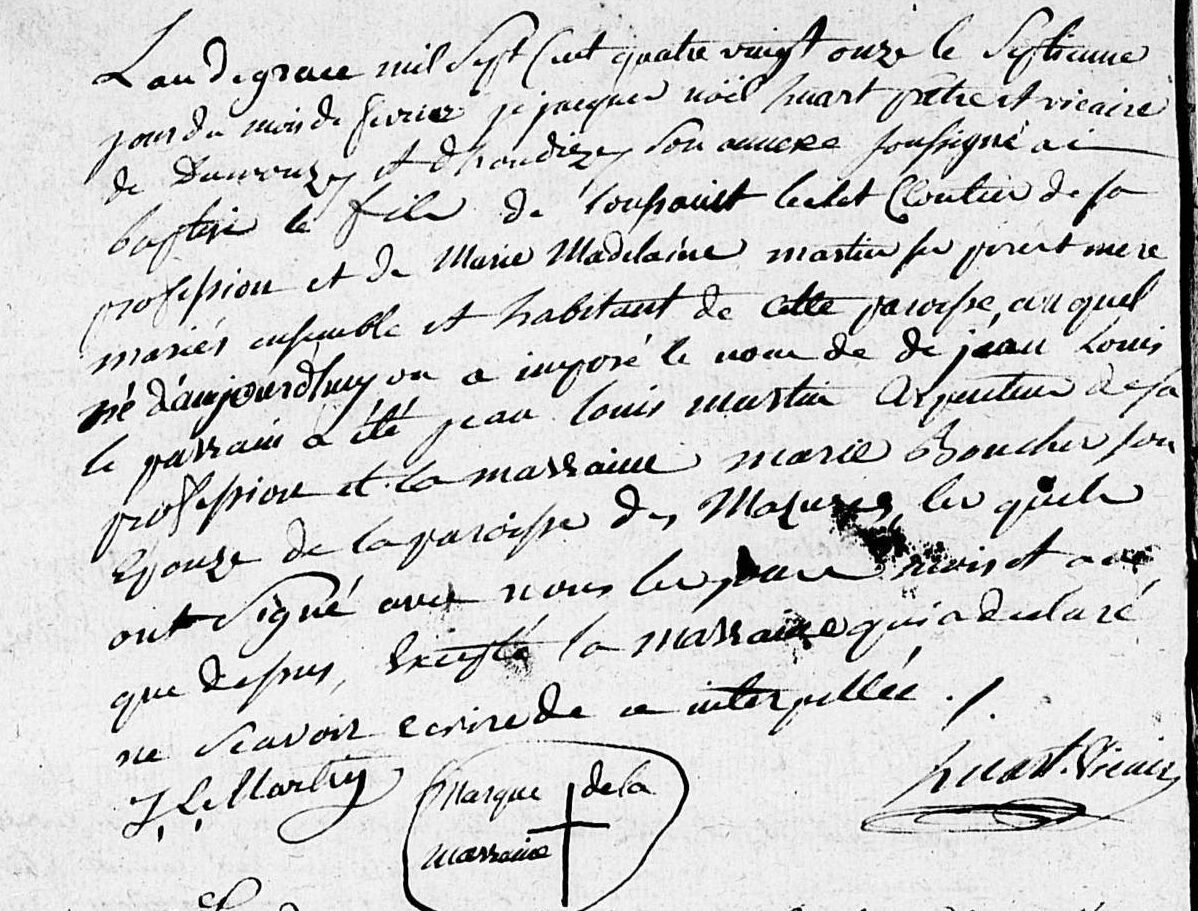 Lan de grace mil Sept Cent quatre vingt onze le Septieme
jour du mois de fevrier je jacques nöel huart pretre et vicaire
de et d'haudrezy Son annexe soussigné ai
baptisé le fils de toussaint Cloutier de sa
profession et de Marie Madelaine martin ses pere et mere
mariés ensemble et habitant de cette paroisse, au quel
né d'aujourd'huy on a imposé le nom de de jean Louis
le parrain a été jean louis martin Arpenteur de sa
profession et la marraine marie Boucher son
Epouze de la paroisse des Mazures, les quels
ont Signé avec nous les jour mois et an
que dessus, Excepté la marraine qui a declaré
ne Scavoir ecrire de ce interpellée ./.
huart. Vicaire
J. L. Martin
Marque de la
marraine